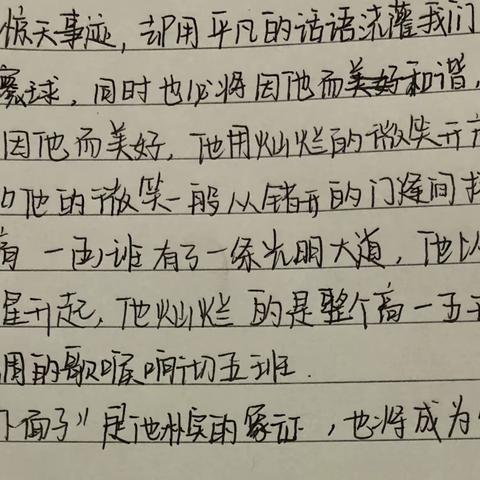 惊天事迹，却用平凡的话语浇灌我们
寰球，同时也必将因他而美好和谐，
因他而美好，他用灿烂的微笑开
他的微笑一般从锗开的门缝间
一五班有了一条光明大道，他以
星升起，他灿烂 的是整个高一五
周的歌喉响切五班.
下面子"是他朴实的象征，也将成为